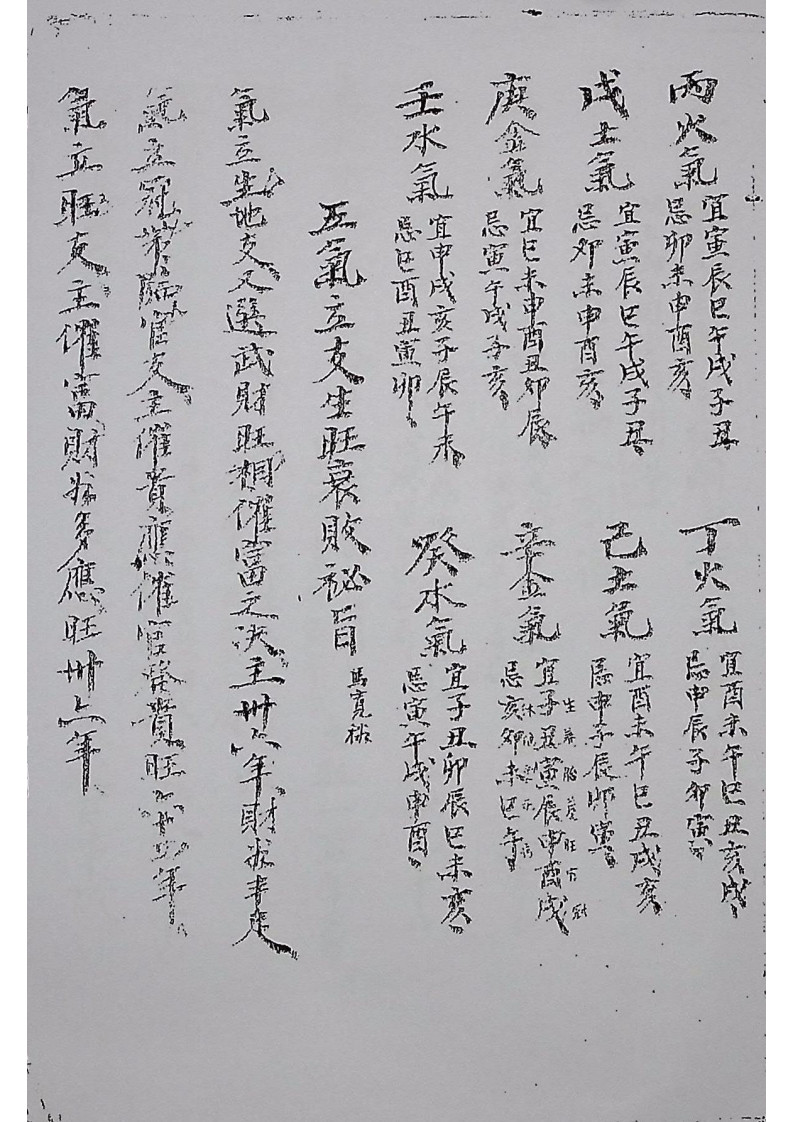 丙火氣
宜寅辰巳午戌子丑
忌卯未申酉亥
丁火氣
宜酉未午巳丑亥戌
忌申辰子卯寅
戊土氣
宜寅辰巳午戌子丑
忌卯未申酉亥
己土氣
宜酉未午巳丑戌亥
忌申子辰卯寅
庚金氣
宜巳未申酉丑卯辰
忌寅午戌子亥
辛金氣
生養胎墓旺官冠
宜子丑寅辰申酉戌
忌亥卯未巳午
壬水氣
宜申戌亥子辰午未
忌巳酉丑寅卯
癸水氣
宜子丑卯辰巳未亥
忌寅午戌申酉
五氣立支生旺衰敗秘旨
氣立生地支又選武財旺相催富之決主卅六年財求丰足
氣立冠帶臨官支主催貴應催官發貴旺廿四年
氣立旺支主催富財發多應旺卅六年